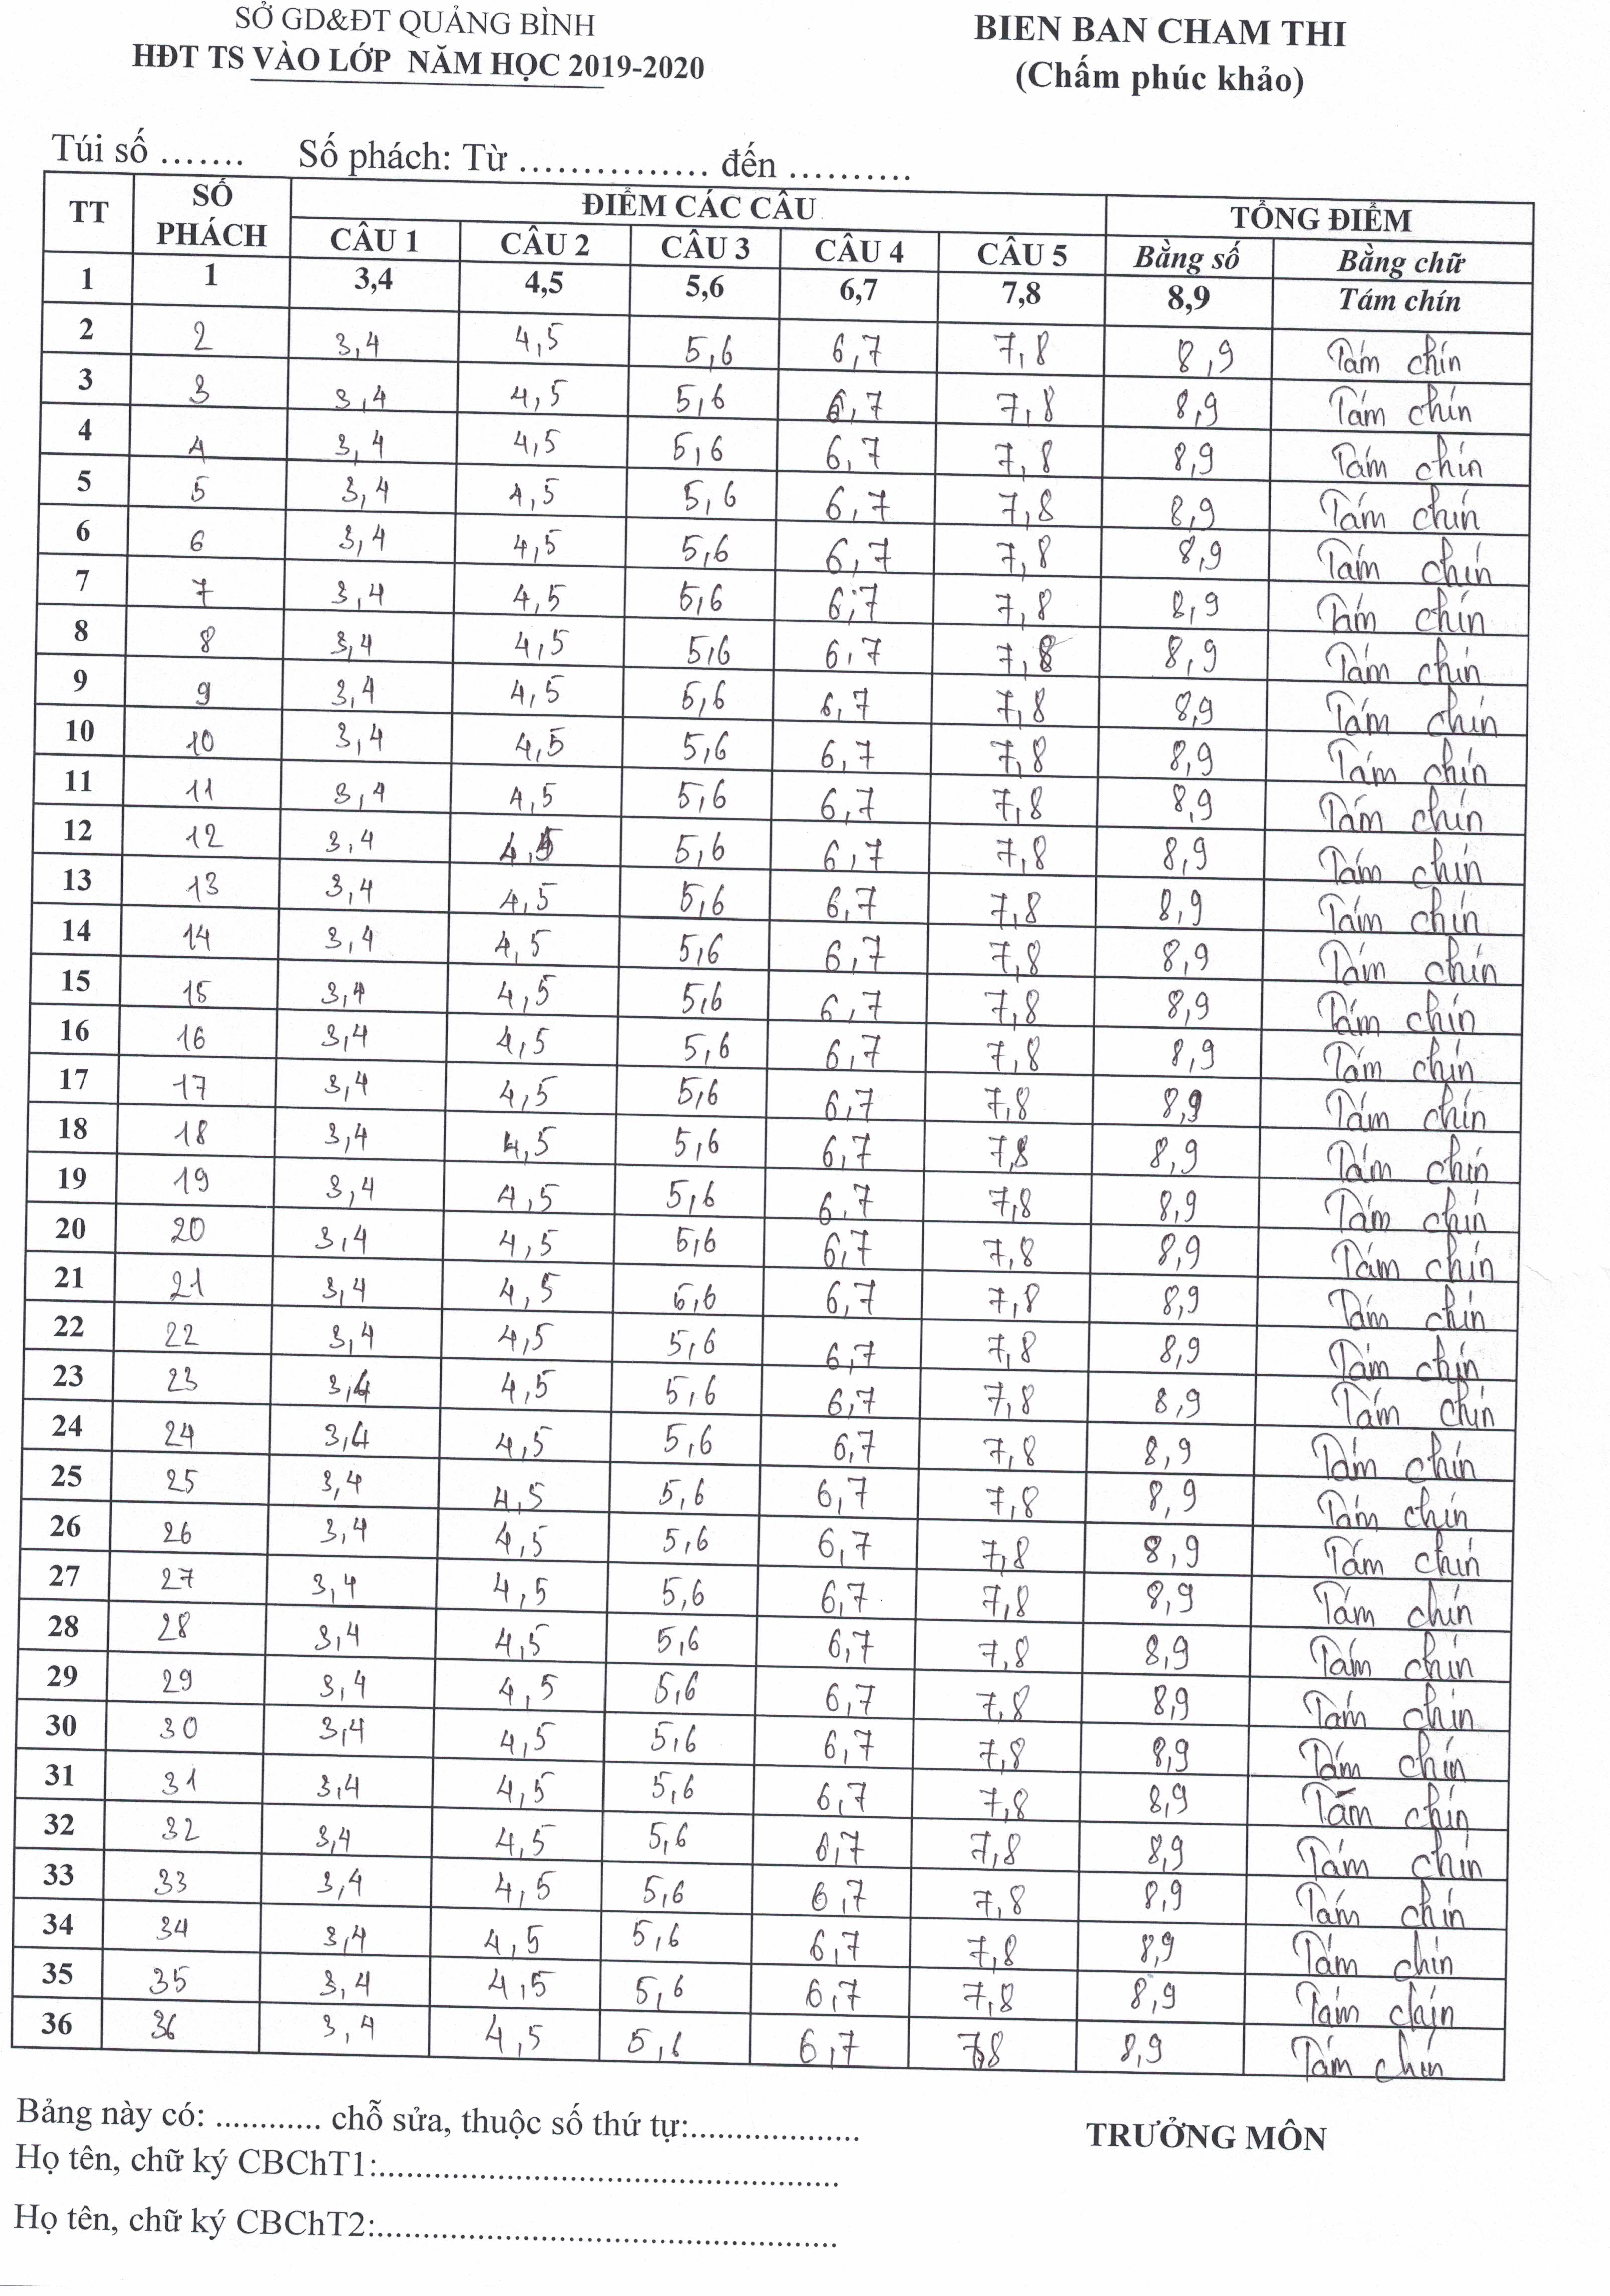 SỞ GD&ĐT QUẢNG BÌNH
HĐT TS VÀO LỚP NĂM HỌC 2019-2020
BIEN BAN CHAM THI
(Chấm phúc khảo)
Túi số ....... Số phách: Từ ................ đến ...........
TT SỐ PHÁCH ĐIỂM CÁC CÂU TỔNG ĐIỂM
CÂU 1 CÂU 2 CÂU 3 CÂU 4 CÂU 5 Bằng số Bằng chữ
1 1 3,4 4,5 5,6 6,7 7,8 8,9 Tám chín
2 2 3,4 4,5 5,6 6,7 7,8 8,9 Tám chín
3 3 3,4 4,5 5,6 6,7 7,8 8,9 Tám chín
4 4 3,4 4,5 5,6 6,7 7,8 8,9 Tám chín
5 5 3,4 4,5 5,6 6,7 7,8 8,9 Tám chín
6 6 3,4 4,5 5,6 6,7 7,8 8,9 Tám chín
7 7 3,4 4,5 5,6 6,7 7,8 8,9 Tám chín
8 8 3,4 4,5 5,6 6,7 7,8 8,9 Tám chín
9 9 3,4 4,5 5,6 6,7 7,8 8,9 Tám chín
10 10 3,4 4,5 5,6 6,7 7,8 8,9 Tám chín
11 11 3,4 4,5 5,6 6,7 7,8 8,9 Tám chín
12 12 3,4 4,5 5,6 6,7 7,8 8,9 Tám chín
13 13 3,4 4,5 5,6 6,7 7,8 8,9 Tám chín
14 14 3,4 4,5 5,6 6,7 7,8 8,9 Tám chín
15 15 3,4 4,5 5,6 6,7 7,8 8,9 Tám chín
16 16 3,4 4,5 5,6 6,7 7,8 8,9 Tám chín
17 17 3,4 4,5 5,6 6,7 7,8 8,9 Tám chín
18 18 3,4 4,5 5,6 6,7 7,8 8,9 Tám chín
19 19 3,4 4,5 5,6 6,7 7,8 8,9 Tám chín
20 20 3,4 4,5 5,6 6,7 7,8 8,9 Tám chín
21 21 3,4 4,5 5,6 6,7 7,8 8,9 Tám chín
22 22 3,4 4,5 5,6 6,7 7,8 8,9 Tám chín
23 23 3,4 4,5 5,6 6,7 7,8 8,9 Tám chín
24 24 3,4 4,5 5,6 6,7 7,8 8,9 Tám chín
25 25 3,4 4,5 5,6 6,7 7,8 8,9 Tám chín
26 26 3,4 4,5 5,6 6,7 7,8 8,9 Tám chín
27 27 3,4 4,5 5,6 6,7 7,8 8,9 Tám chín
28 28 3,4 4,5 5,6 6,7 7,8 8,9 Tám chín
29 29 3,4 4,5 5,6 6,7 7,8 8,9 Tám chín
30 30 3,4 4,5 5,6 6,7 7,8 8,9 Tám chín
31 31 3,4 4,5 5,6 6,7 7,8 8,9 Tám chín
32 32 3,4 4,5 5,6 6,7 7,8 8,9 Tám chín
33 33 3,4 4,5 5,6 6,7 7,8 8,9 Tám chín
34 34 3,4 4,5 5,6 6,7 7,8 8,9 Tám chín
35 35 3,4 4,5 5,6 6,7 7,8 8,9 Tám chín
36 36 3,4 4,5 5,6 6,7 7,8 8,9 Tám chín
Bảng này có: ............ chỗ sửa, thuộc số thứ tự:...................
TRƯỞNG MÔN
Họ tên, chữ ký CBChT1:..................................................
Họ tên, chữ ký CBChT2:..................................................